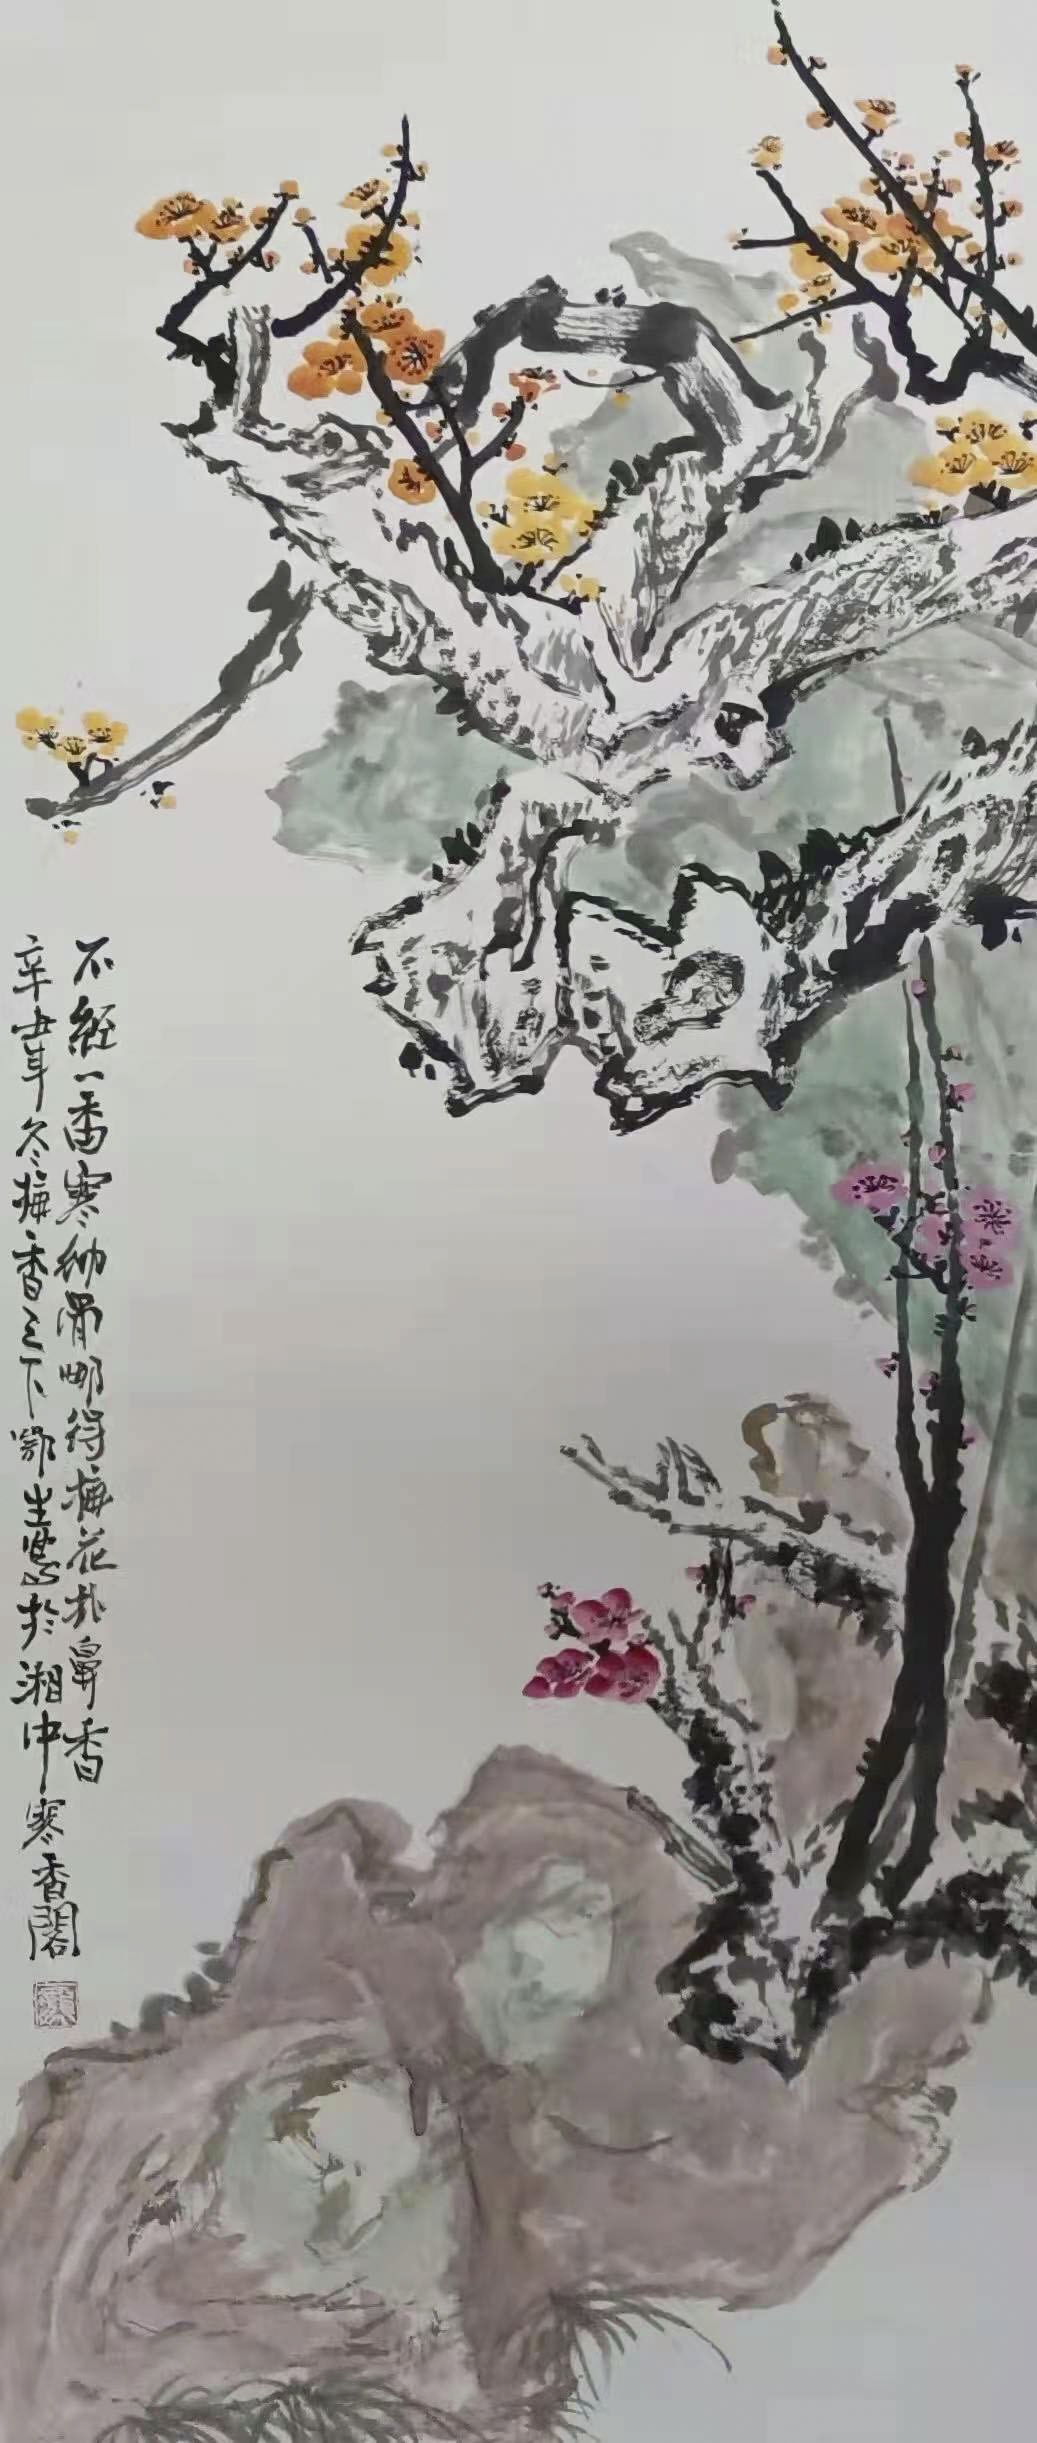 不經一番寒徹骨哪得梅花扑鼻香
辛丑年冬梅香之下鄂生寫於湘中寒香閣